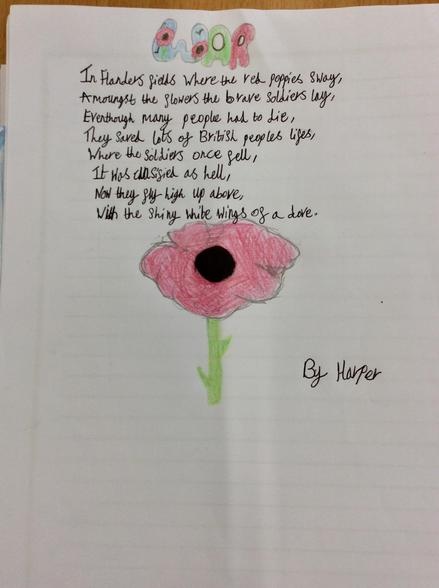 WAR
In Flanders fields where the red poppies sway,
Amoungst the flowers the brave soldiers lay,
Eventhough many people had to die,
They saved lots of British peoples lifes,
Where the soldiers once fell,
It was classified as hell,
Now they fly high up above,
With the shiny white wings of a dove.
By Harper